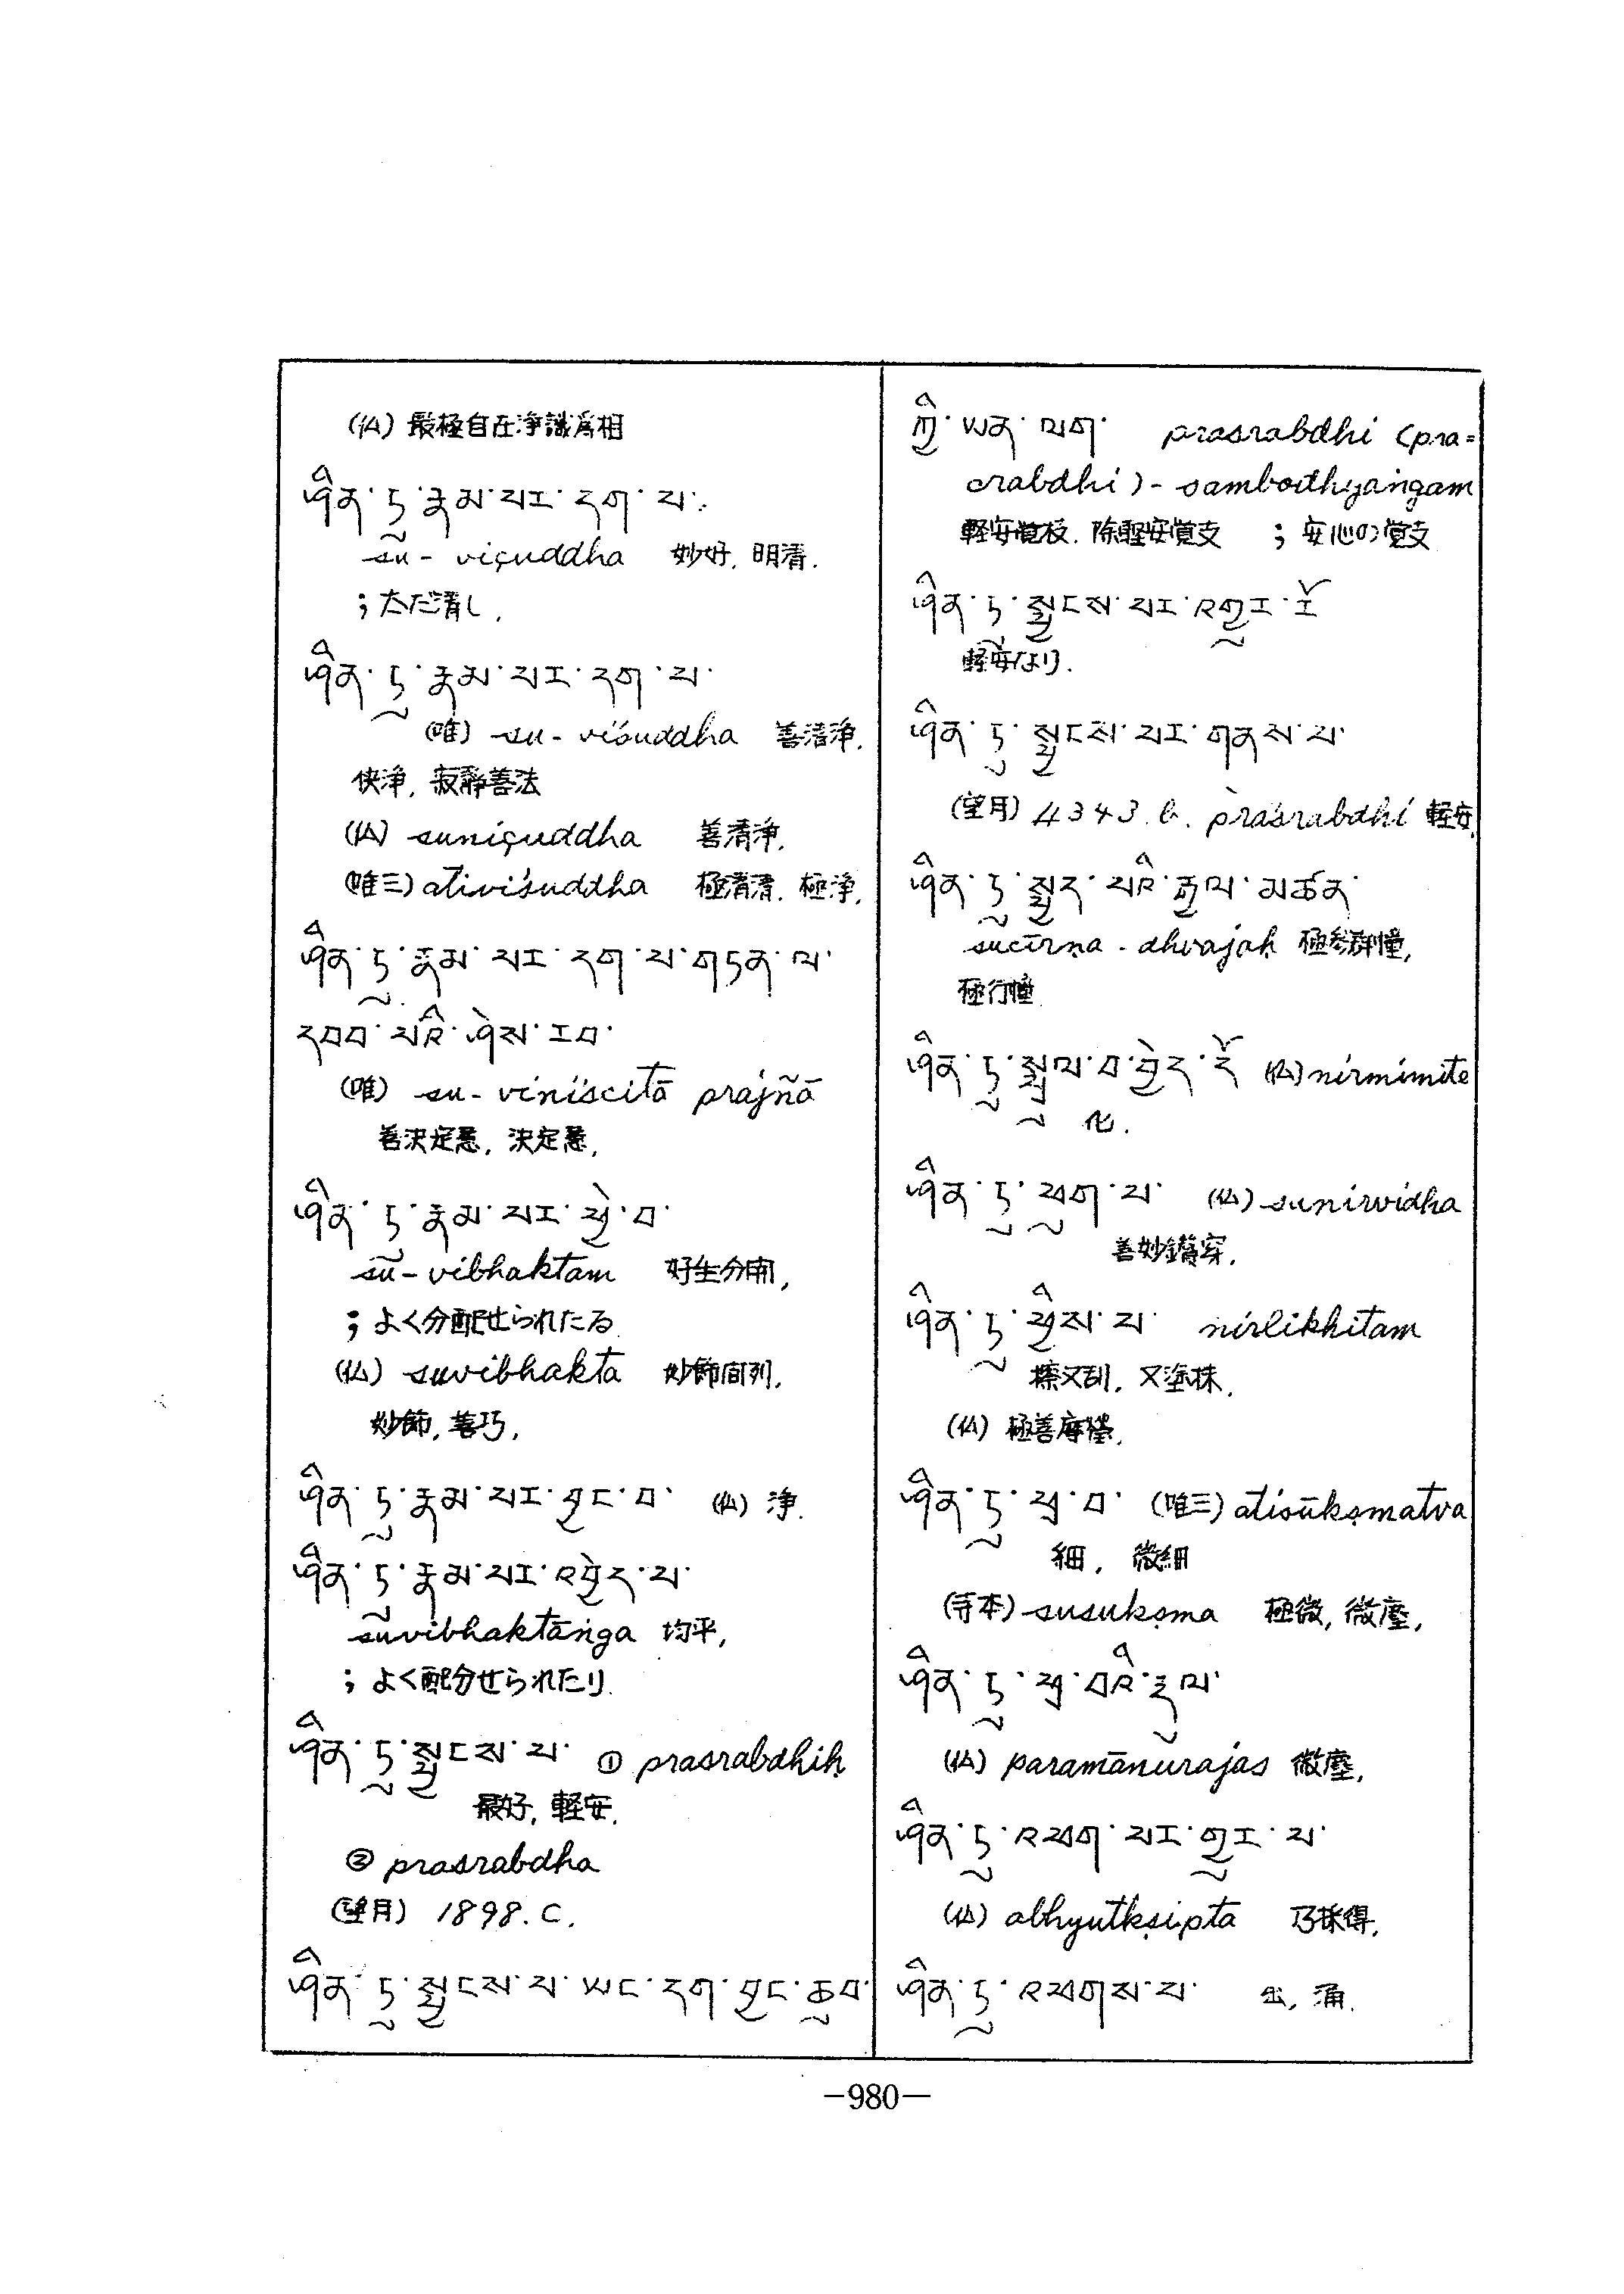 (仏) 最極自在淨識爲相
ཤིན་ཏུ་རྣམ་པར་དག་པ་
su - viçuddha 妙好, 明清.
; 太だ清し,
ཤིན་ཏུ་རྣམ་པར་དག་པ་
(唯) su - viśuddha 善清淨,
快淨, 寂靜善法
(仏) suniçuddha 善清淨,
(唯三) ativiśuddha 極清清, 極淨,
ཤིན་ཏུ་རྣམ་པར་དག་པ་གཏན་ལ་
དབབ་པའི་ཤེས་རབ་
(唯) su - viniścitā prajñā
善決定慧, 決定慧,
ཤིན་ཏུ་རྣམ་པར་ཕྱེ་བ་
su - vibhaktam 好生分開,
; よく分配せられたる
(仏) suvibhakta 妙飾間列,
妙飾, 善巧,
ཤིན་ཏུ་རྣམ་པར་བྱང་བ་ (仏) 淨.
ཤིན་ཏུ་རྣམ་པར་འབྱེད་པ་
suvibhaktāṅga 均平,
; よく配分せられたり.
ཤིན་ཏུ་སྦྱངས་པ་ ① prasrabdhiḥ
最好, 軽安.
② prasrabdha
(望月) 1898. C.
ཤིན་ཏུ་སྦྱངས་པ་ཡང་དག་བྱང་ཆུབ་
ཀྱི་ཡན་ལག་ prasrabdhi (pra=
crabdhi) - sambodhyaṅgam
軽安覚枝. 除軽安覚支 ; 安心の覚支
ཤིན་ཏུ་སྦྱངས་པར་འགྱུར་རོ
軽安なり.
ཤིན་ཏུ་སྦྱངས་པར་གནས་པ་
(望月) 4343. b. praśrabdhi 軽安,
ཤིན་ཏུ་སྤྱད་པའི་རྒྱལ་མཚན་
sucīrṇa - dhvajaḥ 極参群幢,
極行幢
ཤིན་ཏུ་སྤྲུལ་བ་བྱེད་དོ (仏) nirmimite
化.
ཤིན་ཏུ་ཕུག་པ་ (仏) sunirvidha
善妙鑽穿,
ཤིན་ཏུ་ཕྱིས་པ་ nirlikhitam
擦又刮, 又塗抹,
(仏) 極善摩瑩,
ཤིན་ཏུ་ཕྲ་བ་ (唯三) atisūkṣmatva
細, 微細
(寺本) susukṣma 極微, 微塵,
ཤིན་ཏུ་ཕྲ་བའི་རྡུལ་
(仏) paramānurajas 微塵,
ཤིན་ཏུ་འཕག་པར་གྱུར་པ་
(仏) abhyutkṣipta 乃採得,
ཤིན་ཏུ་འཕགས་པ་ 出, 涌.
—980—